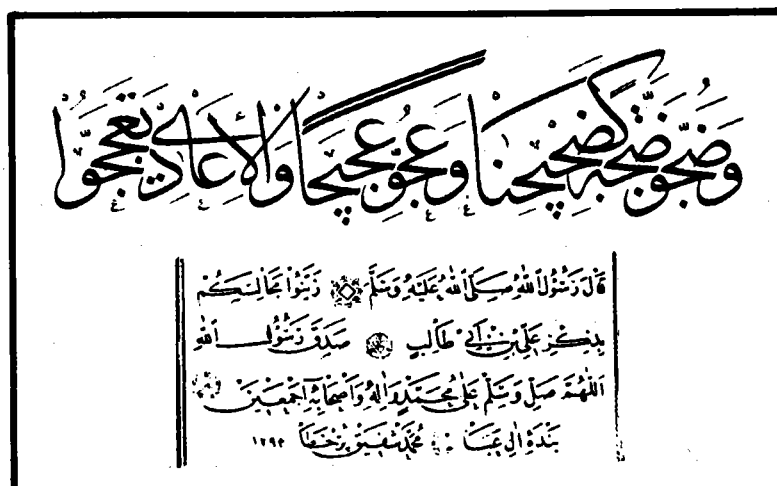 وضجوا ضجة كضجيجنا وعجوا عجيجا والأعادي تعججوا
قَالَ رَسُولُ اللهِ صَلَّى اللهُ عَلَيْهِ وَسَلَّمَ زَيِّنُوا مَجَالِسَكُمْ
بِذِكْرِ عَلِيِّ بْنِ أَبِي طَالِبٍ صَدَقَ رَسُولُ اللهِ
اَللّٰهُمَّ صَلِّ وَسَلِّمْ عَلَى مُحَمَّدٍ وَاٰلِهِ وَاَصْحَابِهِ اَجْمَعِينَ
بنده ال عبا محمد شفيق پر خطا ١٢٩٣